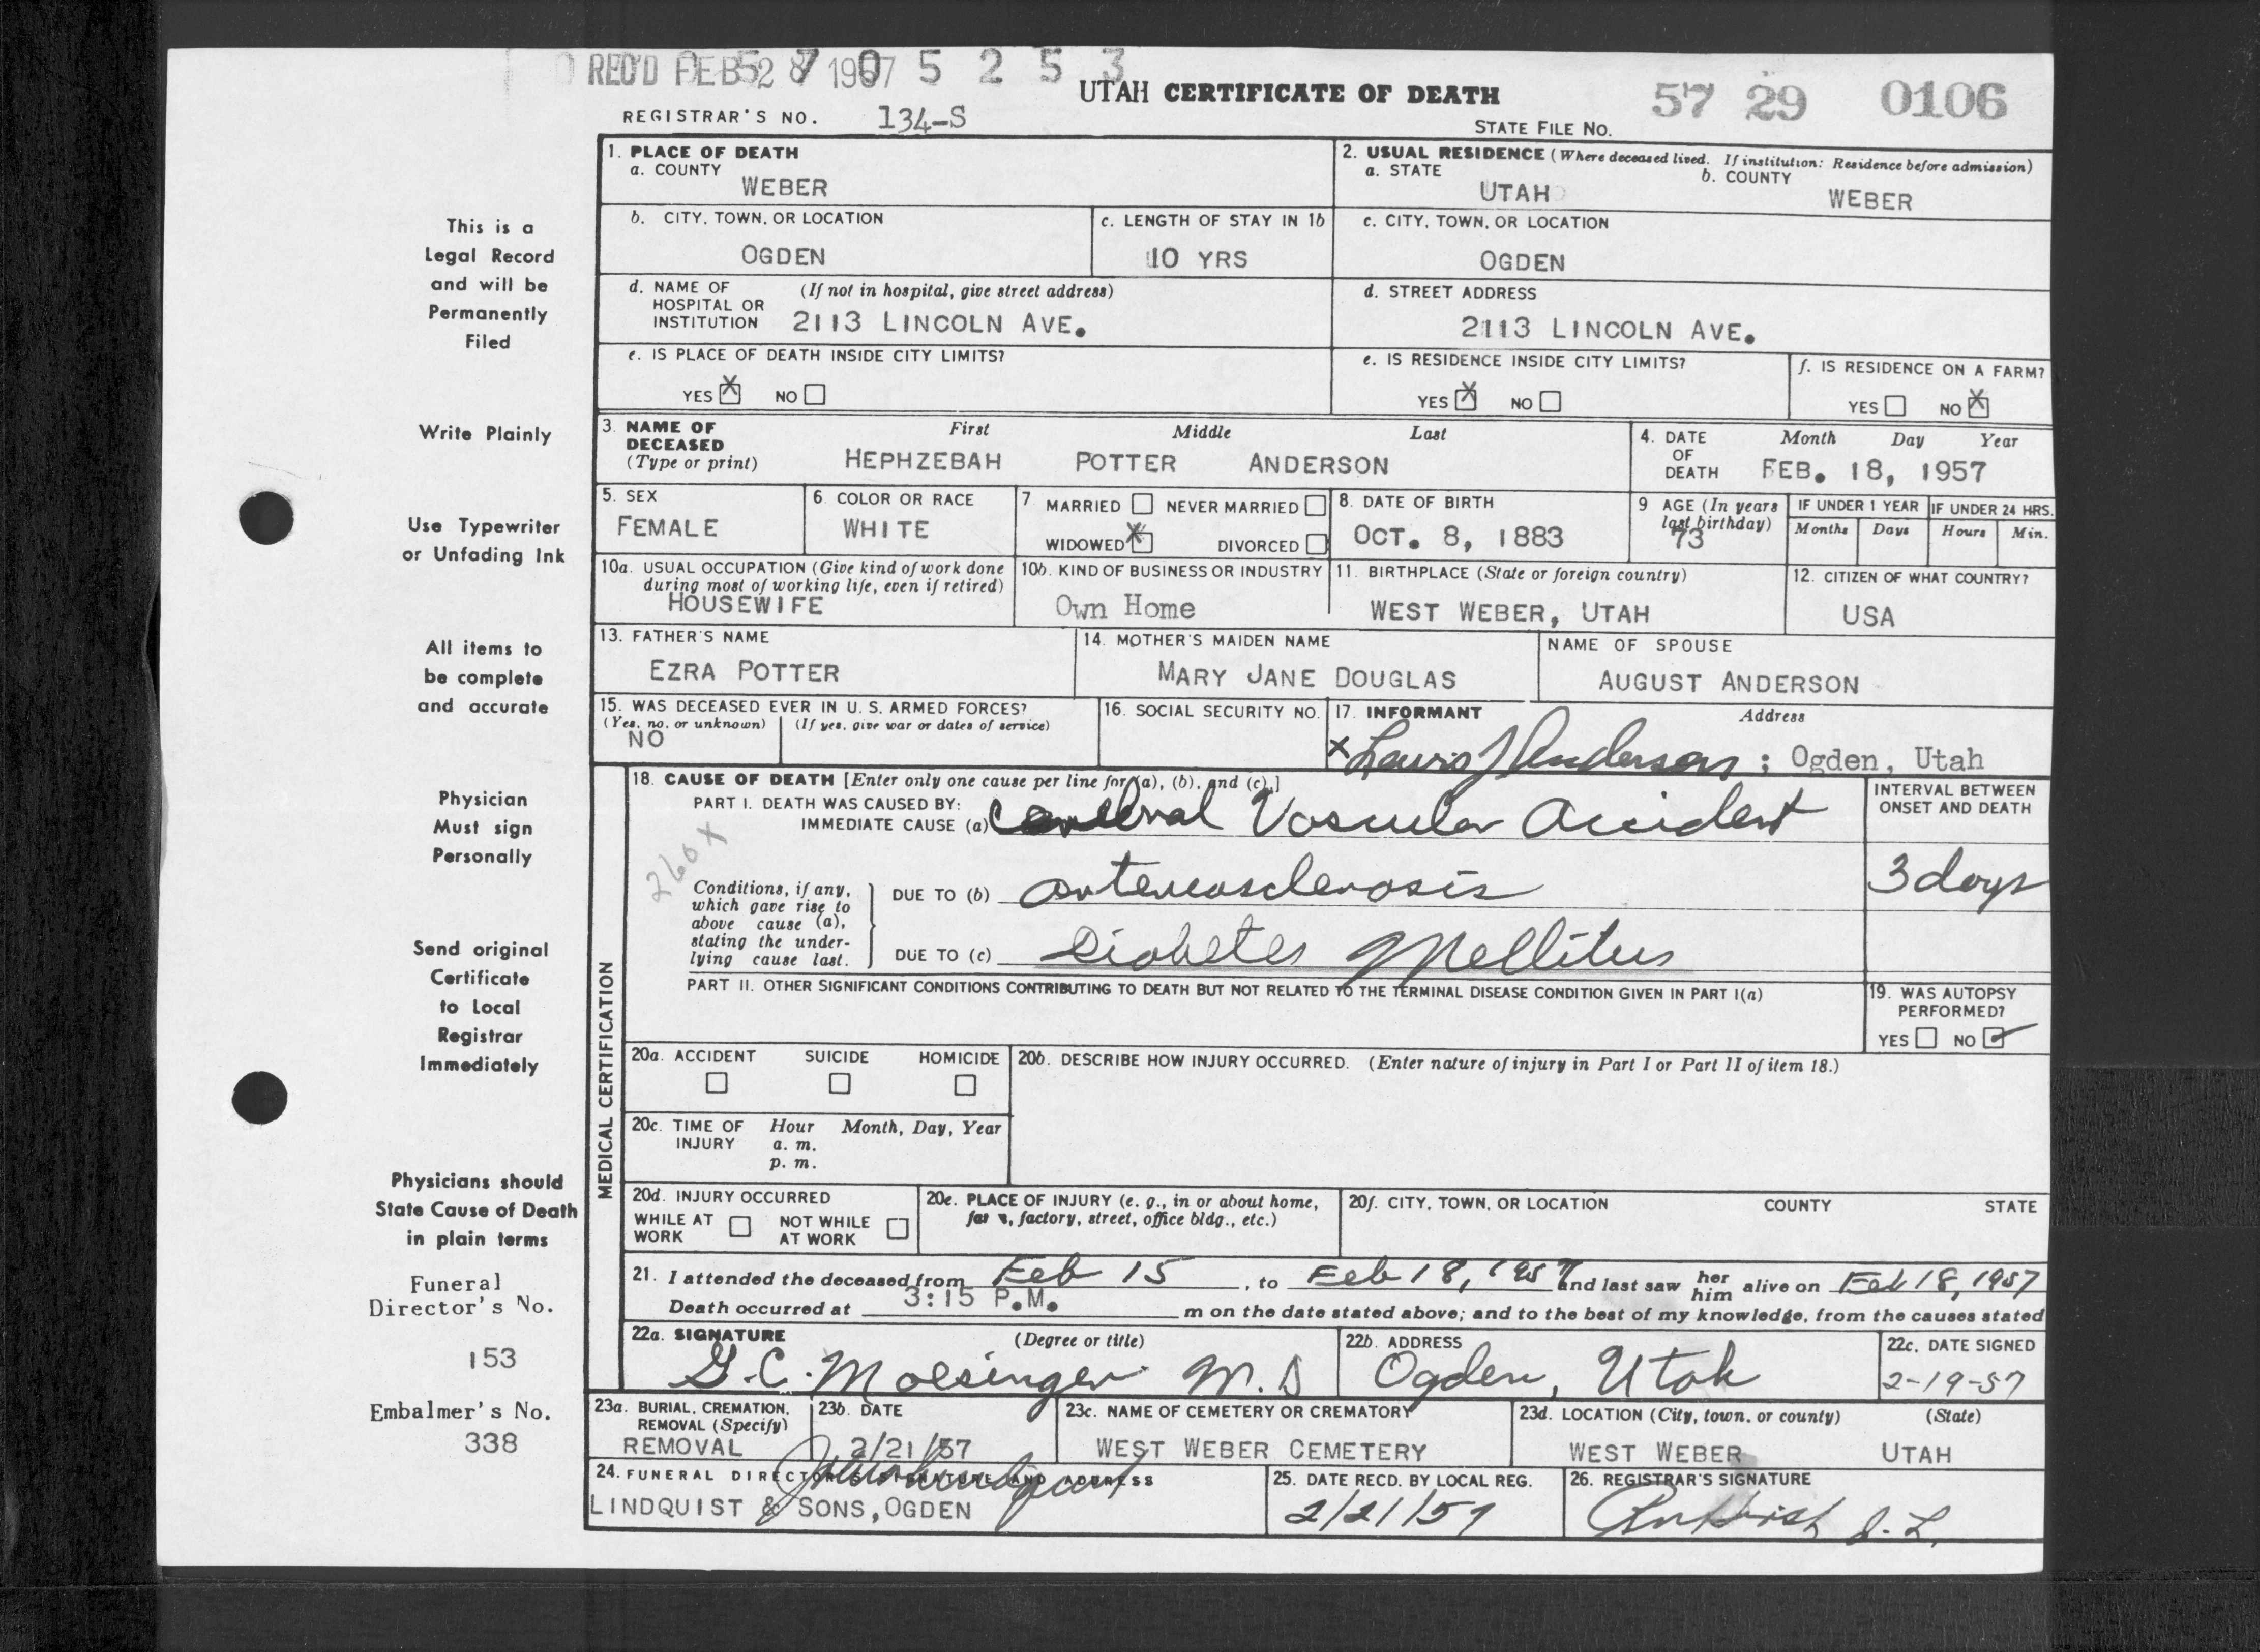 REC'D FEB 28 1957 5 2 5 3
UTAH CERTIFICATE OF DEATH
57 29 0106
REGISTRAR'S NO. 134-S
STATE FILE NO.
This is a
Legal Record
and will be
Permanently
Filed
Write Plainly
Use Typewriter
or Unfading Ink
All items to
be complete
and accurate
Physician
Must sign
Personally
Send original
Certificate
to Local
Registrar
Immediately
Physicians should
State Cause of Death
in plain terms
Funeral
Director's No.
153
Embalmer's No.
338
1. PLACE OF DEATH
a. COUNTY
WEBER
2. USUAL RESIDENCE (Where deceased lived. If institution: Residence before admission)
a. STATE
UTAH
b. COUNTY
WEBER
b. CITY, TOWN, OR LOCATION
OGDEN
c. LENGTH OF STAY IN 1b
10 YRS
c. CITY, TOWN, OR LOCATION
OGDEN
d. NAME OF (If not in hospital, give street address)
HOSPITAL OR
INSTITUTION 2113 LINCOLN AVE.
d. STREET ADDRESS
2113 LINCOLN AVE.
e. IS PLACE OF DEATH INSIDE CITY LIMITS?
YES X NO
e. IS RESIDENCE INSIDE CITY LIMITS?
YES X NO
f. IS RESIDENCE ON A FARM?
YES NO X
3. NAME OF First Middle Last
DECEASED
(Type or print) HEPHZEBAH POTTER ANDERSON
4. DATE Month Day Year
OF
DEATH FEB. 18, 1957
5. SEX
FEMALE
6 COLOR OR RACE
WHITE
7 MARRIED NEVER MARRIED
WIDOWED X DIVORCED
8. DATE OF BIRTH
OCT. 8, 1883
9 AGE (In years
last birthday)
73
IF UNDER 1 YEAR
Months Days
IF UNDER 24 HRS.
Hours Min.
10a. USUAL OCCUPATION (Give kind of work done
during most of working life, even if retired)
HOUSEWIFE
10b. KIND OF BUSINESS OR INDUSTRY
Own Home
11. BIRTHPLACE (State or foreign country)
WEST WEBER, UTAH
12. CITIZEN OF WHAT COUNTRY?
USA
13. FATHER'S NAME
EZRA POTTER
14. MOTHER'S MAIDEN NAME
MARY JANE DOUGLAS
NAME OF SPOUSE
AUGUST ANDERSON
15. WAS DECEASED EVER IN U. S. ARMED FORCES?
(Yes, no, or unknown) (If yes, give war or dates of service)
NO
16. SOCIAL SECURITY NO.
17. INFORMANT Address
x Lewis J Anderson ; Ogden, Utah
MEDICAL CERTIFICATION
18. CAUSE OF DEATH [Enter only one cause per line for (a), (b), and (c).]
PART I. DEATH WAS CAUSED BY:
IMMEDIATE CAUSE (a) Cerebral Vascular Accident
INTERVAL BETWEEN
ONSET AND DEATH
3 days
260 X
Conditions, if any,
which gave rise to
above cause (a),
stating the under-
lying cause last.
DUE TO (b) arteriosclerosis
DUE TO (c) Diabetes Mellitus
PART II. OTHER SIGNIFICANT CONDITIONS CONTRIBUTING TO DEATH BUT NOT RELATED TO THE TERMINAL DISEASE CONDITION GIVEN IN PART I(a)
19. WAS AUTOPSY
PERFORMED?
YES NO ✓
20a. ACCIDENT SUICIDE HOMICIDE
20b. DESCRIBE HOW INJURY OCCURRED. (Enter nature of injury in Part I or Part II of item 18.)
20c. TIME OF Hour Month, Day, Year
INJURY a. m.
p. m.
20d. INJURY OCCURRED
WHILE AT NOT WHILE
WORK AT WORK
20e. PLACE OF INJURY (e. g., in or about home,
farm, factory, street, office bldg., etc.)
20f. CITY, TOWN, OR LOCATION COUNTY STATE
21. I attended the deceased from Feb 15, to Feb 18, 1957 and last saw her him alive on Feb 18, 1957
Death occurred at 3:15 P.M. m on the date stated above; and to the best of my knowledge, from the causes stated
22a. SIGNATURE (Degree or title)
G. C. Moesinger M.D
22b. ADDRESS
Ogden, Utah
22c. DATE SIGNED
2-19-57
23a. BURIAL, CREMATION,
REMOVAL (Specify)
REMOVAL
23b. DATE
2/21/57
23c. NAME OF CEMETERY OR CREMATORY
WEST WEBER CEMETERY
23d. LOCATION (City, town, or county) (State)
WEST WEBER UTAH
24. FUNERAL DIRECTOR'S SIGNATURE AND ADDRESS
LINDQUIST & SONS, OGDEN
25. DATE RECD. BY LOCAL REG.
2/21/57
26. REGISTRAR'S SIGNATURE